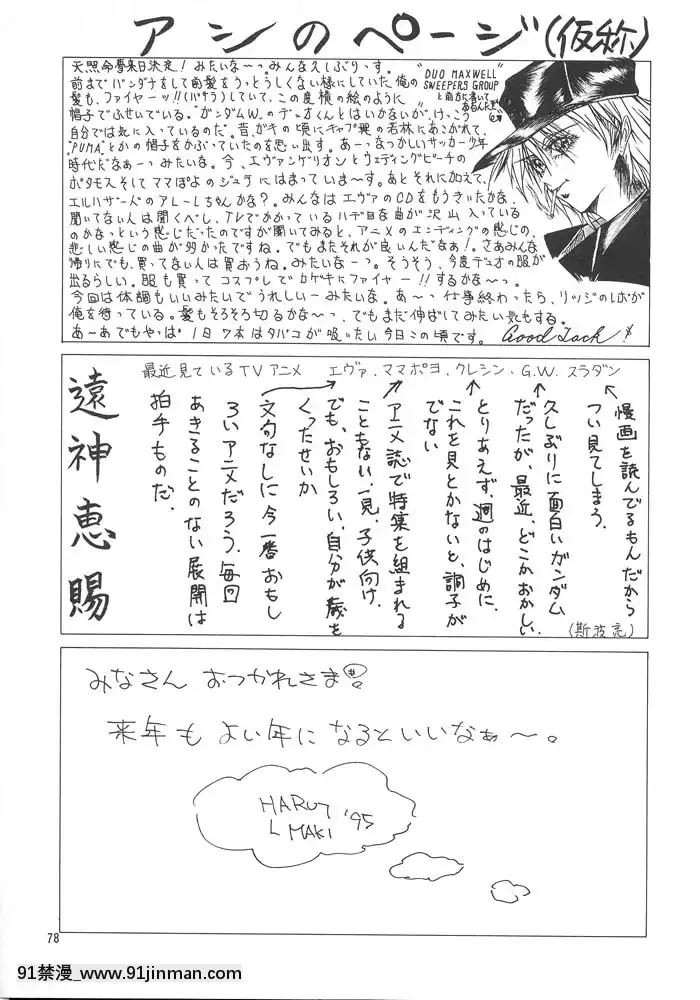 アシのページ(仮称)
天照命夢来日決定！みたいな~っ。みんなえしぶりっす。
前までバンダナをして前髪をうっとうしくない様にしていた俺の
髪も、ファイヤーッ!!(バサラ)していて、この度横の絵のように
帽子でふせいでいる。"ガンダムW"のデュオくんとはいかないが、けっこう
自分では気に入っているのだ。昔、ガキの頃にキャプ翼の若林にあこがれて、
"PUMA"とかの帽子をかぶっていたのを思い出す。なつかしいサッカー少年
時代だなぁーっみたいな。今、エヴァンゲリオンとウェディングピーチの
ポタモスそしてママぽよのジュテにはまっていま~す。あとそれに加えて、
エルハザードのアレーレちゃんかな？。みんなはエヴァのCDをもうきいたかな、
聞いてない人は聞くべし、TVでかかっているハデ目な曲が沢山入っている
のかなっという感じだったのですが聞いてみると、アニメのエンディングの感じの、
悲しい感じの曲が多かったですね。でもまたそれが良いんだなぁ！。さあみんな
帰りにでも、買ってない人は買おうね。みたいなーっ。そうそう、今度デュオの服が
出るらしい。服も買ってコスプレでカゲキにファイヤー!!するかな~っ。
今回は体調もいいみたいでうれしいーみたいな。あ~っ仕事終わったら、リッジのレボが
俺を待っている。髪もそろそろ切るかな~っ、でもまだ伸ばしてみたい気もする。
あーあでもやっぱ1日7本はタバコが吸いたい今日この頃です。Good Luck!
"DUO MAXWELL"
SWEEPERS GROUP
と前方に書いて
あるんだ
最近見ているTVアニメ エヴァ、ママポヨ、クレシン、G.W.スラダン
漫画を読んでるもんだから
つい見てしまう。
久しぶりに面白いガンダム
だったが、最近、どこかおかしい
(斯波亮)
とりあえず、週のはじめに、
これを見とかないと、調子が
でない
アニメ誌で特集を組まれる
こともない、一見、子供向け、
でも、おもしろい、自分が歳を
くったせいか
文句なしに今一番おもし
ろいアニメだろう、毎回
あきることのない展開は
拍手ものだ。
遠神恵賜
みなさん おつかれさま!
来年もよい年になるといいなぁ~。
HARU
L MAKI '95
78
91禁漫_www.91jinman.com